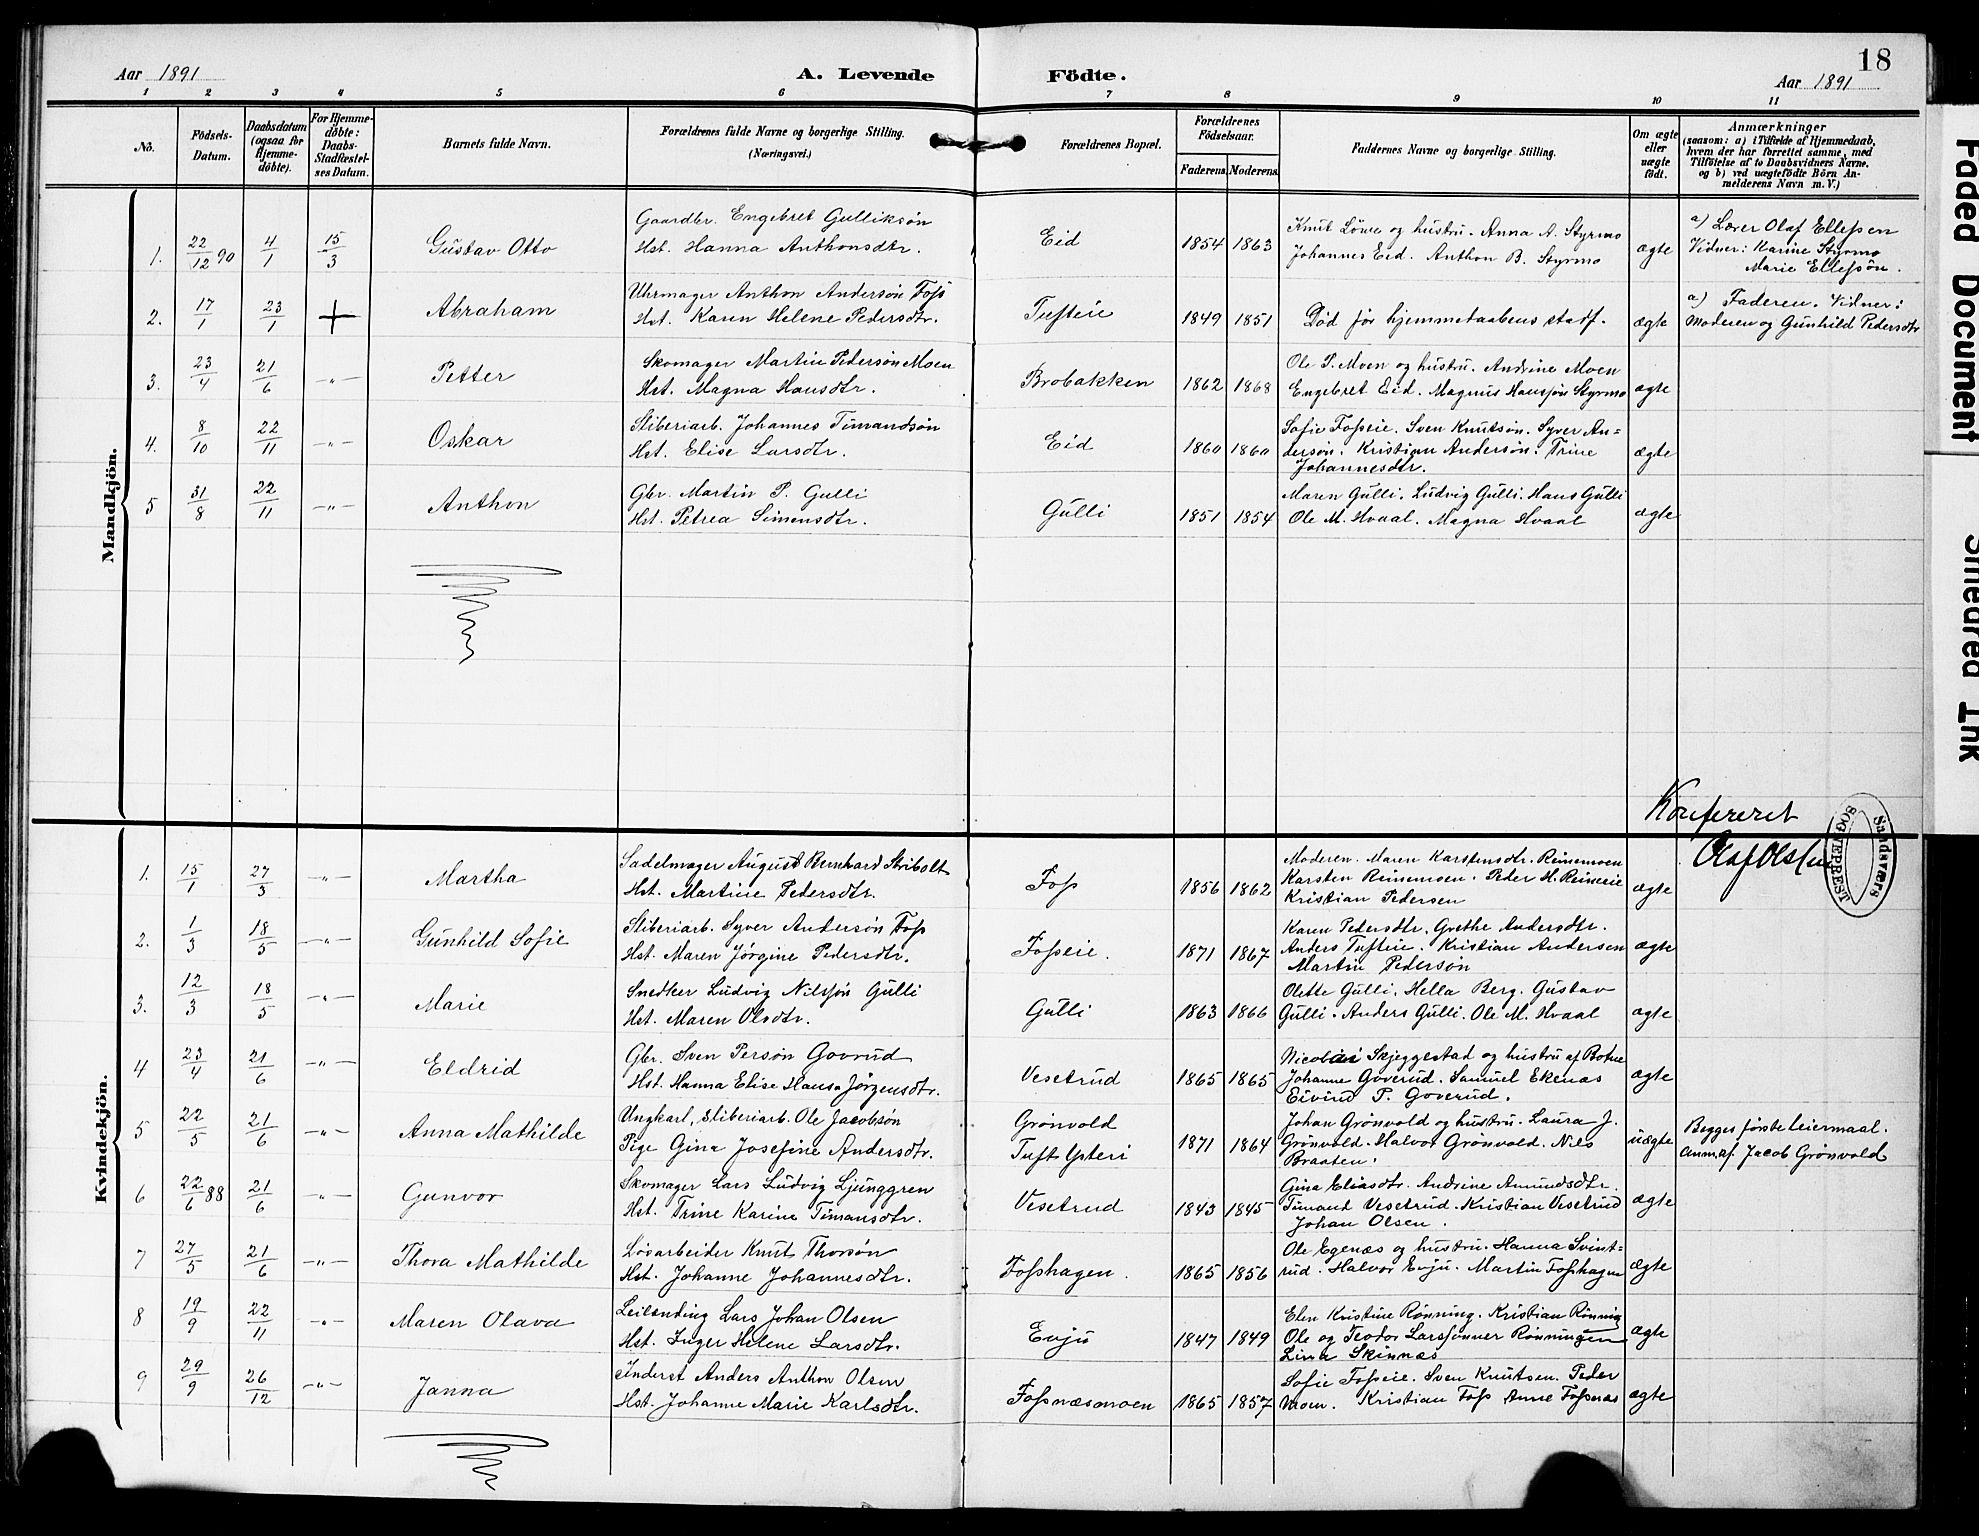 18
Aar 1891
A. Levende
Födte.
Aar 1891
1 2 3 4 5 6 7 8 9 10 11
No.
Födsels-Datum.
Daabsdatum (ogsaa for Hjemme-döbte).
For Hjemme-döbte: Daabs-Stadfæstel-ses Datum.
Barnets fulde Navn.
Forældrenes fulde Navne og borgerlige Stilling. (Næringsvei.)
Forældrenes Bopæl.
Forældrenes Födselsaar.
Faderens. Moderens.
Faddernes Navne og borgerlige Stilling.
Om ægte eller uægte födt.
Anmærkninger
(saasom: a) i Tilfælde af Hjemmedaab,
hvem der har forrettet samme, med
Tilföielse af to Daabsvidners Navne,
og b) ved uægtefödte Börn An-
melderens Navn m. V.)
Mandkjön.
1. 22/12 90 4/1 15/3 Gustav Otto
Gaardbr. Engebret Gulliksøn
Hst. Hanna Anthonsdtr.
Eid 1854 1863
Knut Löver og hustru. Anna A. Styrmo
Johannes Eid. Anthon B. Styrmo
ægte
a) Lærer Olaf Ellefsen
Vidner: Karine Styrmo
Marie Ellefsön.
2. 17/1 23/1 + Abraham
Uhrmager Anthon Andersön Fosz
Hst. Karen Helene Pedersdtr.
Tufteie 1849 1851
Död för hjemmedaabens stadf.
ægte
a) Faderen. Vidner:
Moderen og Gunhild Pedersdtr
3. 23/4 21/6 -"- Petter
Skomager Martin Pedersøn Moen
Hst. Magna Hansdtr.
Brobakken 1862 1868
Ole P. Moen og hustru. Andrine Moen
Engebret Eid. Magnus Hansøn Styrmo
ægte
4. 8/10 22/11 -"- Oskar
Sliberiarb. Johannes Timandsön
Hst. Elise Larsdtr.
Eid 1860 1860
Sofie Foszeie. Sven Knutsön. Syver An=
dersøn. Kristian Andersøn. Trine
Johannesdtr.
ægte
5 31/8 22/11 -"- Anthon
Gbr. Martin P. Gulli
Hst. Petrea Simensdtr.
Gulli 1851 1854
Maren Gulli. Ludvig Gulli. Hans Gulli
Ole M. Hvaal. Magna Hvaal
ægte
Konfereret
Olaf Olsen
Sandsværs
SOGNEPREST
Kvindekjön.
1. 15/1 27/3 -"- Martha
Sadelmager August Bernhard Stribolt
Hst. Martine Pedersdtr.
Fosz 1856 1862
Moderen. Maren Karstensdtr. Reinemoen
Karsten Reinemoen. Peder H. Reineeie
Kristian Pedersen
ægte
2. 1/3 18/5 -"- Gunhild Sofie
Sliberiarb. Syver Andersøn Fosz
Hst. Maren Jørgine Pedersdtr.
Foszeie. 1871 1867
Karen Pedersdtr. Grethe Andersdtr.
Anders Tufteie. Kristian Andersen
Martin Pedersön
ægte
3. 12/3 18/5 -"- Marie
Snedker Ludvig Nilssön Gulli
Hst. Maren Olsdtr.
Gulli 1863 1866
Olette Gulli. Hella Berg. Gustav
Gulli. Anders Gulli. Ole M. Hvaal
ægte
4 23/4 21/6 -"- Eldrid
Gbr. Sven Persøn Goverud
Hst. Hanna Elise Hansa Jörgensdtr.
Vesetrud 1865 1865
Nicolai Skjeggestad og hustru af Botne
Johanne Goverud. Samuel Ekenæs
Eivind P. Goverud.
ægte
5 22/5 21/6 -"- Anna Mathilde
Ungkarl, sliberiarb. Ole Jacobsön
Pige Gina Josefine Andersdtr.
Grönvold
Tuft Ysteri 1871 1864
Johan Grönvold og hustru. Laura J.
Grönvold. Halvor Grönvold. Nils
Braaten.
uægte
Begges förste leiermaal.
Anm. af Jacob Grönvold
6 22/6 88 21/6 -"- Gunvor
Skomager Lars Ludvig Ljunggren
Hst. Trine Karine Timansdtr.
Vesetrud 1843 1845
Gina Eliasdtr. Andrine Amundsdtr.
Timand Vesetrud. Kristian Vesetrud
Johan Olsen.
ægte
7 27/5 21/6 -"- Thora Mathilde
Løsarbeider Knut Thorsøn
Hst. Johanne Johannesdtr.
Foszhagen. 1865 1856
Ole Egenæs og hustru. Hanna Svint=
rud. Halvor Evju. Martin Foszhagen
ægte
8 19/9 22/11 -"- Maren Olava
Leilending Lars Johan Olsen
Hst. Inger Helene Larsdtr.
Evju 1847 1849
Elen Kristine Rønning. Kristian Rönning
Ole og Teodor Larssønner Rønningen
Lina Skinnæs
ægte
9 29/9 26/12 -"- Janna
Inderst Anders Anthon Olsen
Hst. Johanne Marie Karlsdtr.
Fosznæsmoen 1865 1857
Sofie Foszeie. Sven Knutsen. Peder
Moen. Kristian Fosz Anne Fosznæs
ægte
Faded Document
Smeared Ink